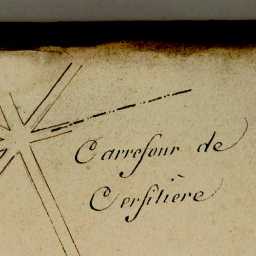 Carrefour de
Cersitière